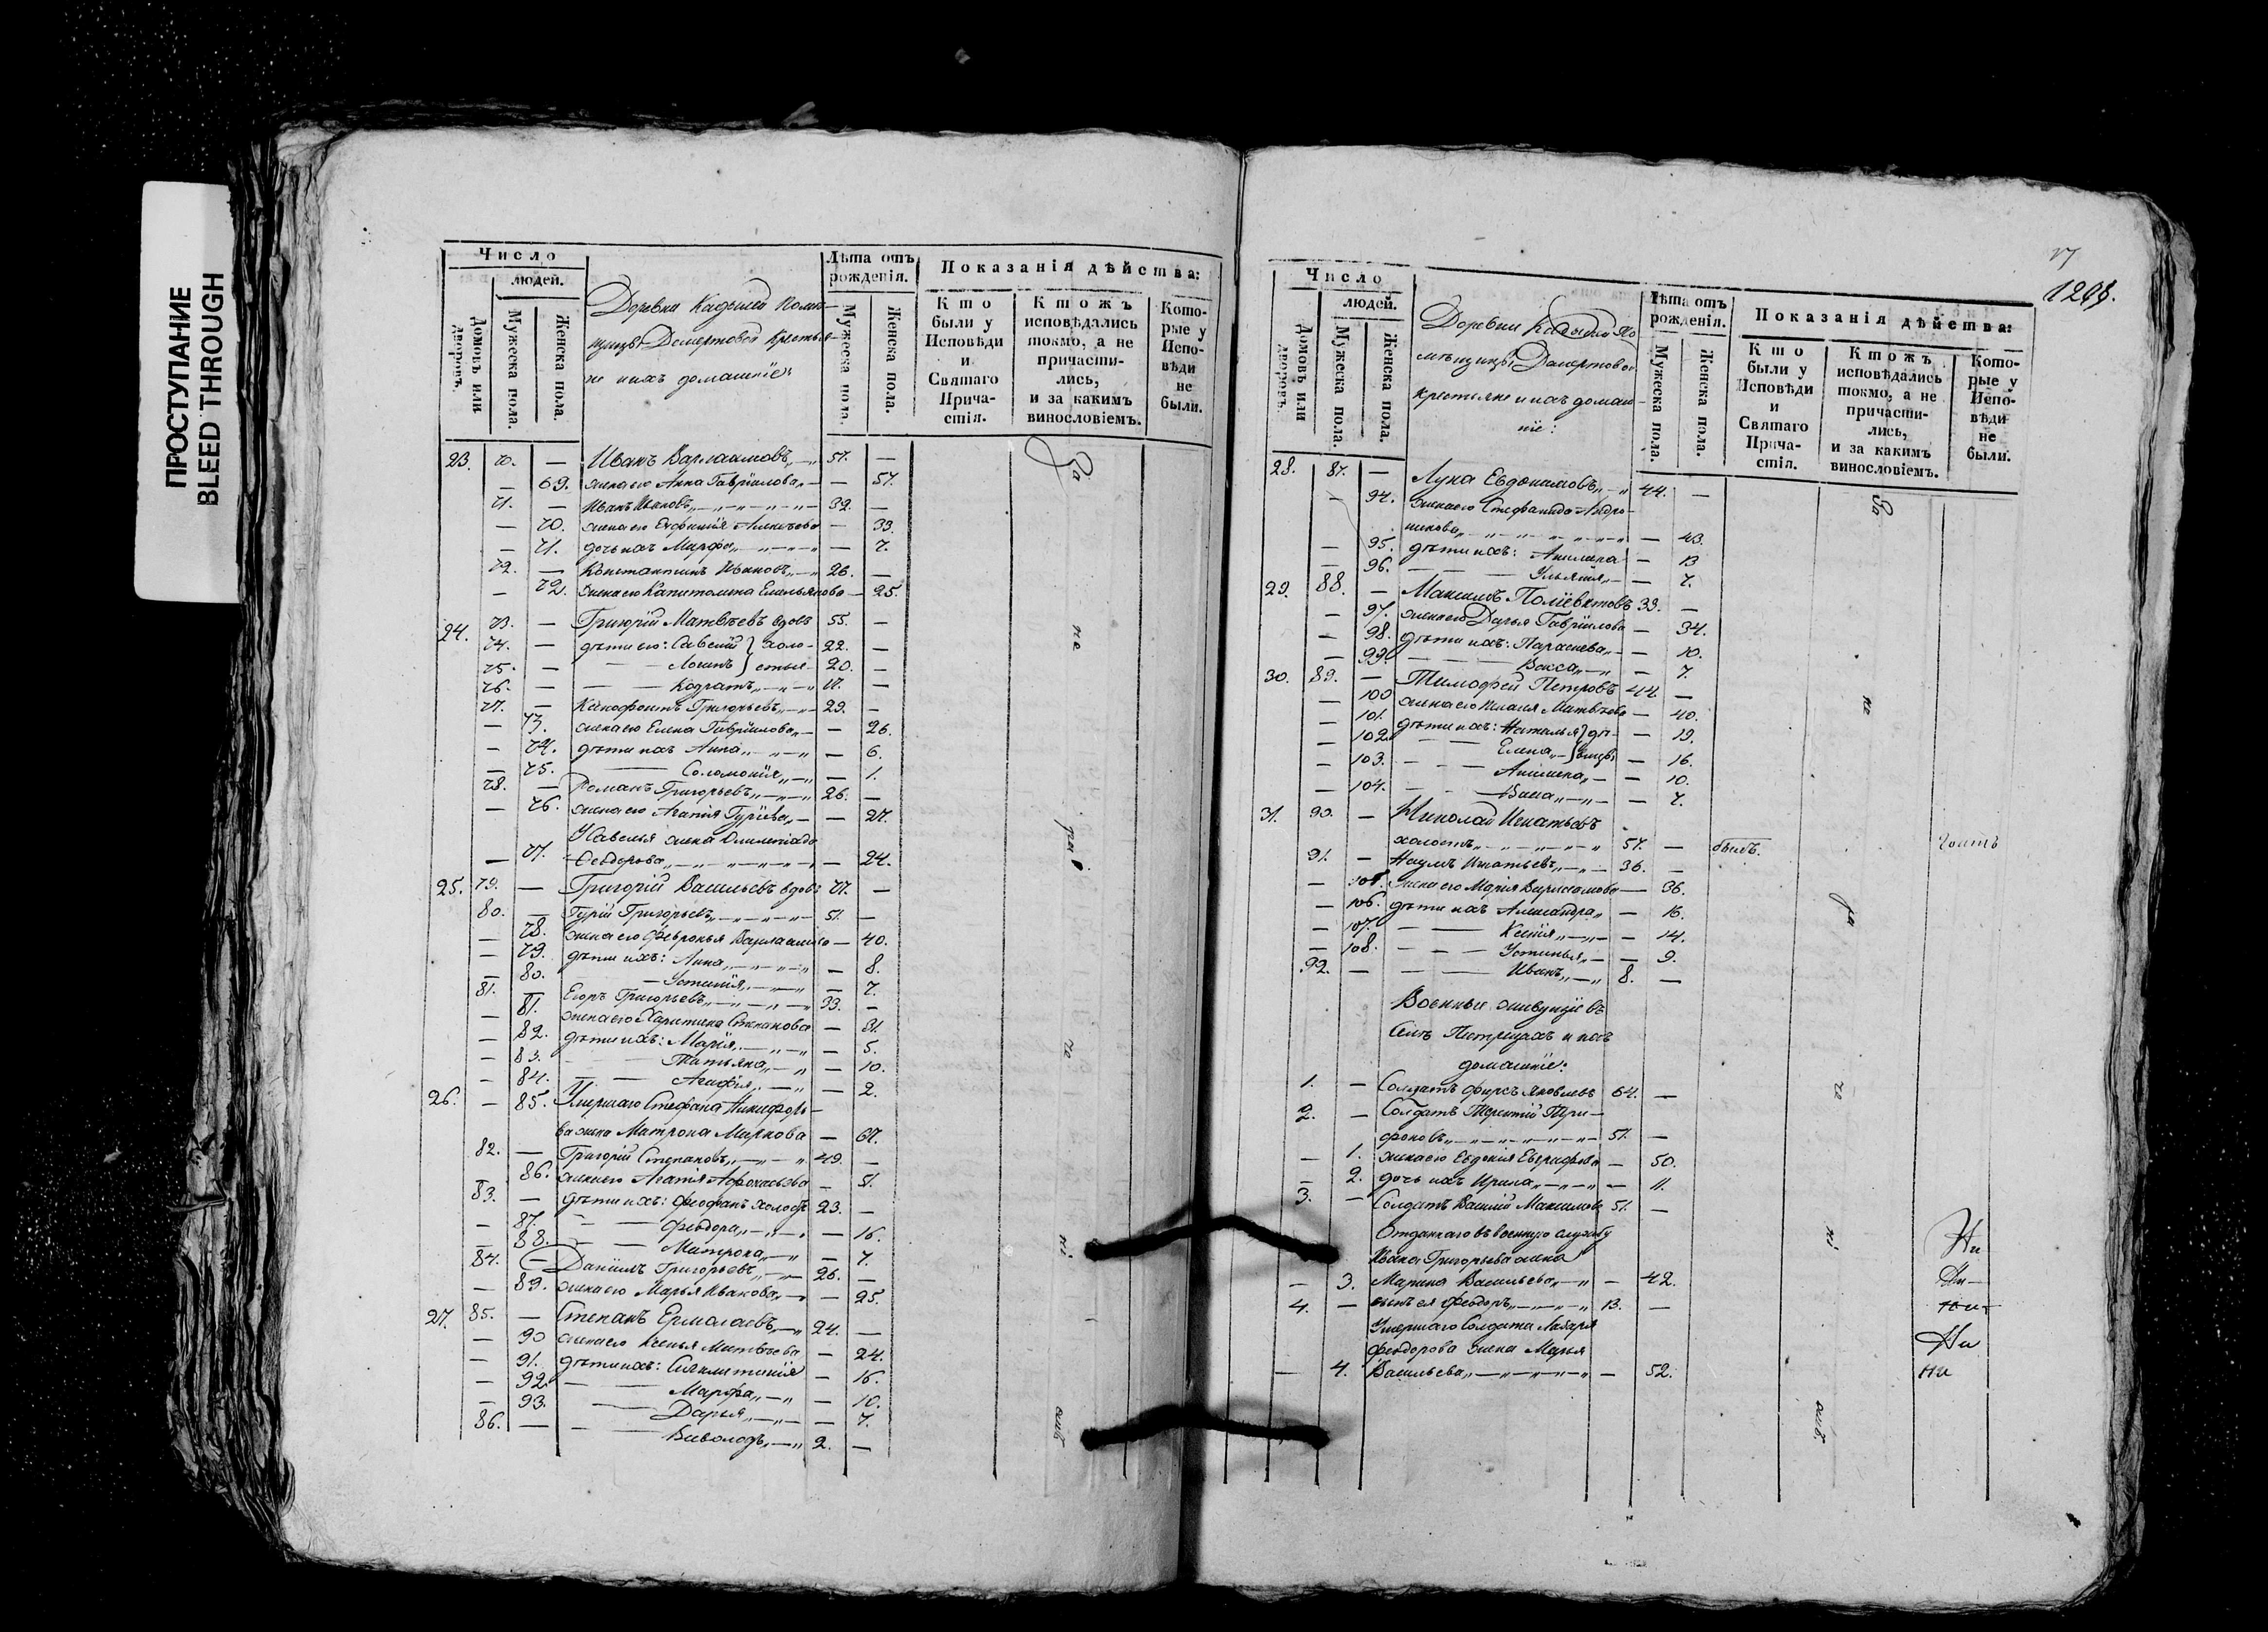 ПРОСТУПАНИЕ
BLEED THROUGH
Число
людей.
Домовъ или дворовъ.
Мужеска пола.
Женска пола.
Деревни Помѣ-
щицы Демертовой Крестья-
не ихъ домашніе:
Лѣта отъ рожденія.
Мужеска пола.
Женска пола.
Показанія дѣйства:
Кто были у Исповѣди и Святаго Прича-стія.
Ктожъ исповѣдались токмо, а не причасти-лись, и за какимъ винословіемъ.
Кото-рые у Испо-вѣди не были.
23. 70. — Иванъ Варлаамовъ 57. —
— 69. жена его Анна Гавріилова — 57.
71. — Иванъ Ивановъ 32. —
— 70. жена его — 33.
— 71. дочь ихъ Марфа — 7.
72. — Константинъ Ивановъ 26. —
— 72. жена его Капитолина Емельянова — 25.
24. 73. — Григорій Матвѣевъ вдовъ 55. —
74. — дѣти его: Савелій } холо- 22. —
75. — Логинъ } стые 20. —
76. — Кодратъ 17. —
77. — Ксенофонтъ Григорьевъ 29. —
— 73. жена его Елена Гавріилова — 26.
— 74. дѣти ихъ Анна — 6.
— 75. Соломонія — 1.
78. — Романъ Григорьевъ 26. —
— 76. жена его Агапія Гуріева — 27.
Савелья жена Олимпіада
— 77. Ѳеодорова — 24.
25. 79. — Григорій Васильевъ вдовъ 77. —
80. — Гурій Григорьевъ 51. —
— 78. жена его Февронья Варлаамова — 40.
— 79. дѣти ихъ: Анна — 8.
— 80. Устинія — 7.
81. — Егоръ Григорьевъ 33. —
— 81. жена его Харитина Степанова — 31.
— 82. дѣти ихъ: Марія — 5.
— 83. Татьяна — 10.
— 84. Агафія — 2.
26. — 85. Умершаго Стефана Никифоро-
ва жена Матрона Маркова — 67.
82. — Григорій Степановъ 49. —
— 86. жена его Агапія — 51.
83. — дѣти ихъ: Феофанъ холостъ 23. —
— 87. Феодора — 16.
— 88. Матрона — 7.
84. — Даніилъ Григорьевъ 26. —
— 89. жена его Марья Иванова — 25.
27. 85. — Степанъ Ермолаевъ 24. —
— 90 жена его Ксенья Матвѣева — 24.
— 91. дѣти ихъ: Синклитикія — 16.
— 92. Марфа — 10.
— 93. Дарья — 7.
86. — Всеволодъ 2. —
За
не
ра
че
ні
емъ
1208.
Число
людей.
Домовъ или дворовъ.
Мужеска пола.
Женска пола.
Деревни По
мѣщицы Демертовой
крестьяне и ихъ домаш-
ніе:
Лѣта отъ рожденія.
Мужеска пола.
Женска пола.
Показанія дѣйства:
Кто были у Исповѣди и Святаго Прича-стія.
Ктожъ исповѣдались токмо, а не причасти-лись, и за какимъ винословіемъ.
Кото-рые у Испо-вѣди не были.
28. 87. — Лука Евдокимовъ 44. —
— 94. жена его Стефанида Андро-
никова — 43.
— 95. дѣти ихъ: Акилина — 13
— 96. Ульянія — 7.
29. 88. — Максимъ Поліевктовъ 33. —
— 97. жена его Дарья Гавріилова — 34.
— 98. дѣти ихъ: Параскева — 10.
— 99. Васса — 7.
30. 89. — Тимофей Петровъ 44. —
— 100 жена его Матвѣева — 40.
— 101. дѣти ихъ: Наталья } дѣ- — 19.
— 102. Елена } вицы — 16.
— 103. Анисия — 10.
— 104. Васса — 7.
31. 90. — Николай Игнатьевъ
холостъ 57. — былъ.
91. — Наумъ Игнатьевъ 36. —
— 105. жена его Марія Варлаамова — 36.
— 106. дѣти ихъ Александра — 16.
— 107. Ксенія — 14.
— 108. Устинья — 9.
92. — Иванъ 8. —
Военные живущіе въ
селѣ Петрецахъ и ихъ
домашніе:
1. — Солдатъ Фирсъ Яковлевъ 64. —
2. — Солдатъ Терентій Три-
фоновъ 51. —
— 1. жена его Евдокія — 50.
— 2. дочь ихъ Ирина — 11.
3. — Солдатъ Василій Максимовъ 51. —
Отданнаго въ военную службу
Ивана Григорьева жена
— 3. Марина Васильева — 42.
4. — сынъ ея Феодоръ 13. —
Умершаго Солдата Лазаря
Феодорова жена Марья
— 4. Васильева — 52.
За
не
ра
че
ні
емъ.